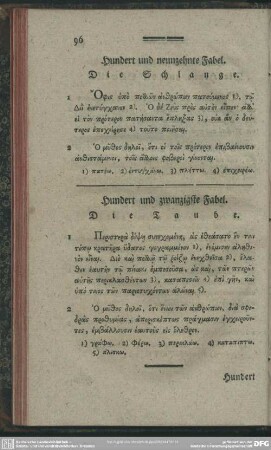 96
Hundert und neunzehnte Fabel.
Die Schlange.
1 Ὄφις ὑπὸ πολλῶν ἀνθρώπων πατούμενος 1), τῷ
Διῒ ἐνετύγχανεν 2). Ὁ δὲ Ζεὺς πρὸς αὐτὸν εἶπεν· ἀλλ'
εἰ τὸν πρότερον πατήσαντα ἔπληξας 3), οὐκ ἂν ὁ δεύτερος
ἐπεχείρησε 4) τοῦτο ποιῆσαι.
2 Ὁ μῦθος δηλοῖ, ὅτι οἱ τοῖς πρότερον ἐπιβαίνουσιν
ἀνθιστάμενοι, τοῖς ἄλλοις φοβεροὶ γίνονται.
1) πατέω. 2) ἐντυγχάνω. 3) πλήττω. 4) ἐπιχειρέω.
Hundert und zwanzigste Fabel.
Die Taube.
1 Περιστερὰ δίψῃ συνεχομένη, ὡς ἐθεάσατο ἔν τινι
τόπῳ κρατῆρα ὕδατος γεγραμμένον 1), ἐνόμισεν ἀληθινὸν
εἶναι. Διὸ καὶ πολλῷ τῷ ῥοίζῳ ἐνεχθεῖσα 2), ἔλαθεν
ἑαυτὴν τῷ πίνακι ἐμπεσοῦσα, ὡς καὶ, τῶν πτερῶν
αὐτῆς περικλασθέντων 3), καταπεσεῖν 4) ἐπὶ γῆν, καὶ
ὑπό τινος τῶν παρατυχόντων ἁλῶναι 5).
2 Ὁ μῦθος δηλοῖ, ὅτι ἔνιοι τῶν ἀνθρώπων, διὰ σφοδρὰς
προθυμίας, ἀπερισκέπτως πράγμασιν ἐγχειροῦντες,
ἐμβάλλουσιν ἑαυτοὺς εἰς ὄλεθρον.
1) γράφω. 2) Φέρω. 3) περικλάω. 4) καταπίπτω.
5) ἁλίσκω.
Hundert